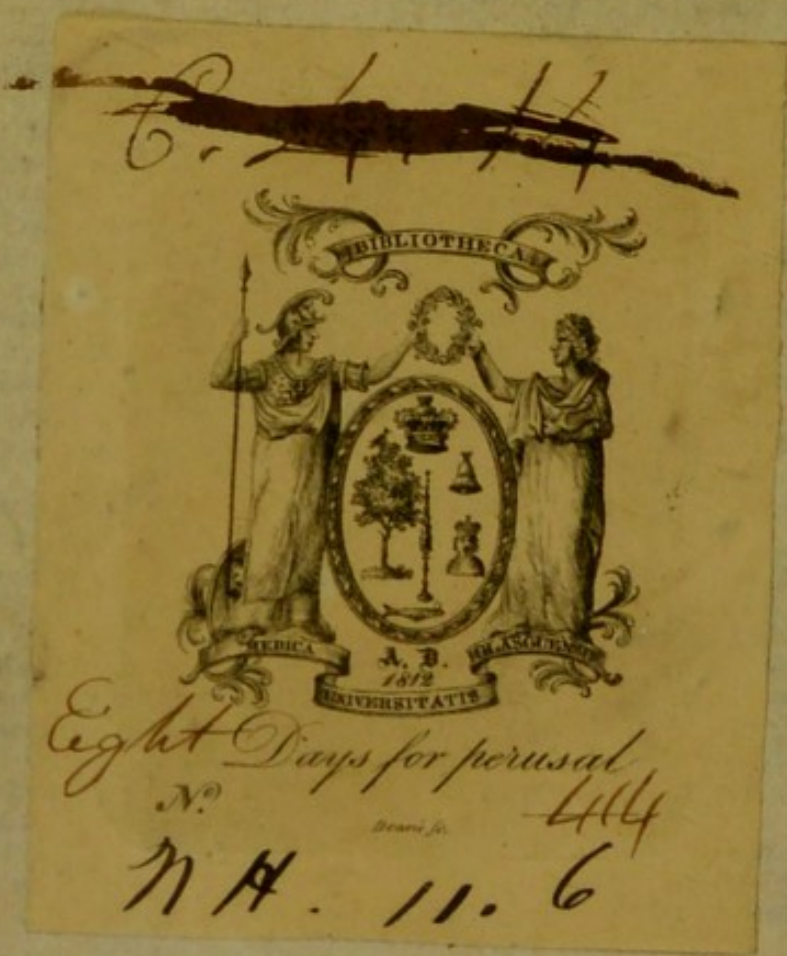 BIBLIOTHECA
MEDICA
GLASGUENSIS
A. D.
1812
UNIVERSITATIS
Eight Days for perusal
No. 414
N H . 11. 6